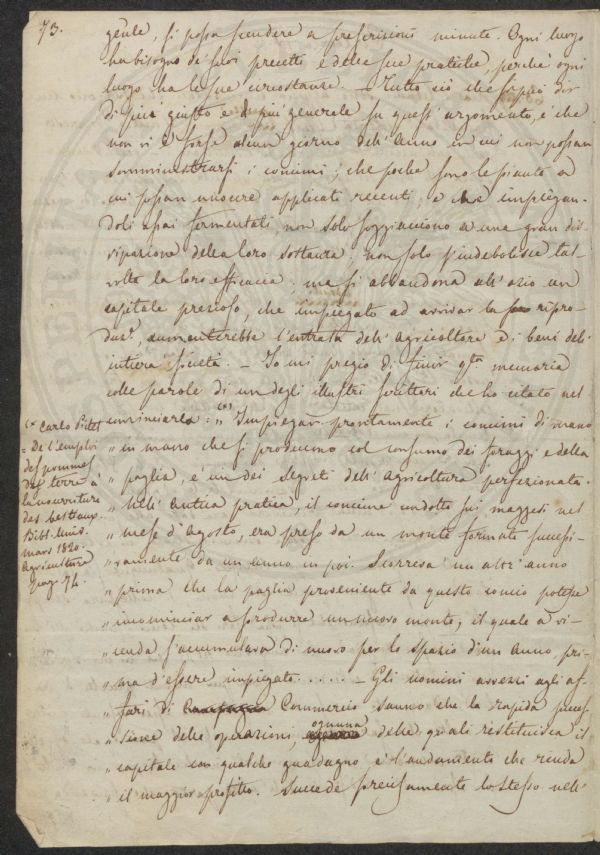 73.
gente, si possa scendere a prescrizioni minute. Ogni luogo
ha bisogno de' suoi precetti e delle sue pratiche, perchè ogni
luogo ha le sue circostanze. - Tutto ciò che si può dir
di più giusto e di più generale su quest' argomento, è che
non vi è forse alcun giorno dell' Anno in cui non possan
somministrarsi i concimi; che poche sono le piante a
cui possan nuocere applicati recenti, e che impiegan-
doli assai fermentati, non solo soggiacciono a una gran dis-
sipazione della loro sostanza: non solo s'indebolisce tal-
volta la loro efficacia: ma si abbandona all' ozio un
capitale prezioso, che impiegato ad avvivar la ripro-
duz.e, aumenterebbe l'entrata dell' Agricoltore e i beni dell'
intiera società. - Io mi pregio di finir q.ta memoria
colle parole di un degli illustri scrittori che ho citato nel
cominciarla: (*) "Impiegar prontamente i concimi di mano
" in mano che si producono col consumo dei foraggi e della
" paglia, è un dei segreti dell' agricoltura perfezionata.
" Nell' antica pratica, il concime condotto sui maggesi nel
" mese d'Agosto, era preso da un monte formato successi-
" vamente da un anno in poi. Scorreva un altr' anno
" prima che la paglia proveniente da questo concio potesse
" incominciar a produrre un nuovo monte, il quale a vi-
" cenda s'accumulava di nuovo per lo spazio d'un Anno, pri-
" ma d'essere impiegato. .... - Gli uomini avvezzi agli af-
" fari di Commercio sanno che la rapida succes-
" sione delle operazioni, ognuna delle quali restituisca il
" capitale con qualche guadagno è l'andamento che renda
" il maggior profitto. Succede precisamente lo stesso nell'
(* Carlo Pictet
= De l'emploi
des pommes
de terre à
la nourriture
des bestiaux.
Bibl. Univ.
mars 1820.
Agriculture
pag. 74.